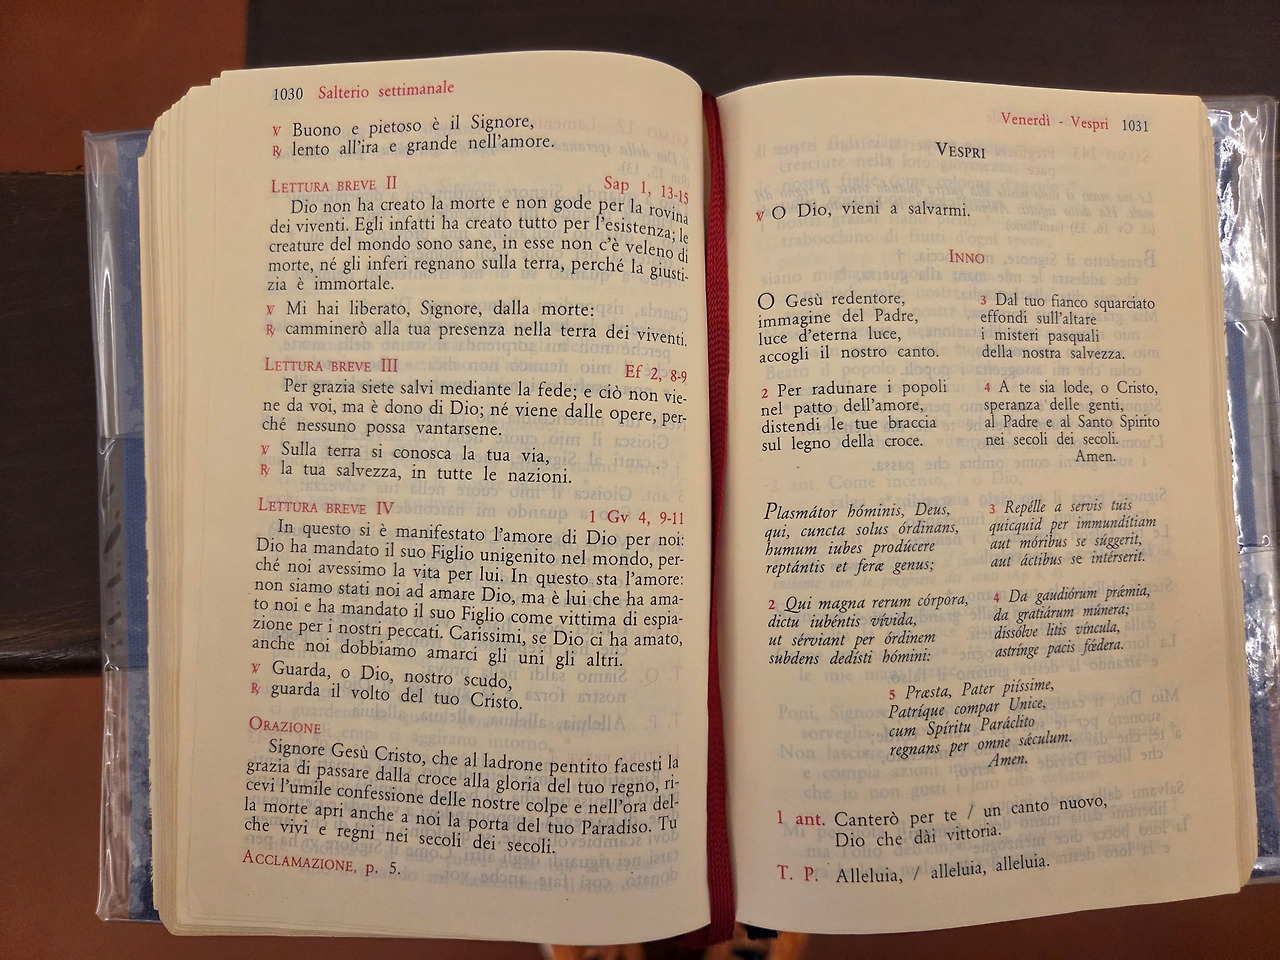 1030 Salterio settimanale
℣ Buono e pietoso è il Signore,
℟ lento all'ira e grande nell'amore.
LETTURA BREVE II Sap 1, 13-15
Dio non ha creato la morte e non gode per la rovina
dei viventi. Egli infatti ha creato tutto per l'esistenza; le
creature del mondo sono sane, in esse non c'è veleno di
morte, né gli inferi regnano sulla terra, perché la giusti-
zia è immortale.
℣ Mi hai liberato, Signore, dalla morte:
℟ camminerò alla tua presenza nella terra dei viventi.
LETTURA BREVE III Ef 2, 8-9
Per grazia siete salvi mediante la fede; e ciò non vie-
ne da voi, ma è dono di Dio; né viene dalle opere, per-
ché nessuno possa vantarsene.
℣ Sulla terra si conosca la tua via,
℟ la tua salvezza, in tutte le nazioni.
LETTURA BREVE IV 1 Gv 4, 9-11
In questo si è manifestato l'amore di Dio per noi:
Dio ha mandato il suo Figlio unigenito nel mondo, per-
ché noi avessimo la vita per lui. In questo sta l'amore:
non siamo stati noi ad amare Dio, ma è lui che ha ama-
to noi e ha mandato il suo Figlio come vittima di espia-
zione per i nostri peccati. Carissimi, se Dio ci ha amato,
anche noi dobbiamo amarci gli uni gli altri.
℣ Guarda, o Dio, nostro scudo,
℟ guarda il volto del tuo Cristo.
ORAZIONE
Signore Gesù Cristo, che al ladrone pentito facesti la
grazia di passare dalla croce alla gloria del tuo regno, ri-
cevi l'umile confessione delle nostre colpe e nell'ora del-
la morte apri anche a noi la porta del tuo Paradiso. Tu
che vivi e regni nei secoli dei secoli.
ACCLAMAZIONE, p. 5.
Venerdì - Vespri 1031
VESPRI
℣ O Dio, vieni a salvarmi.
INNO
O Gesù redentore,
immagine del Padre,
luce d'eterna luce,
accogli il nostro canto.
2 Per radunare i popoli
nel patto dell'amore,
distendi le tue braccia
sul legno della croce.
3 Dal tuo fianco squarciato
effondi sull'altare
i misteri pasquali
della nostra salvezza.
4 A te sia lode, o Cristo,
speranza delle genti,
al Padre e al Santo Spirito
nei secoli dei secoli.
Amen.
Plasmátor hóminis, Deus,
qui, cuncta solus órdinans,
humum iubes prodúcere
reptántis et feræ genus;
2 Qui magna rerum córpora,
dictu iubéntis vívida,
ut sérviant per órdinem
subdens dedísti hómini:
3 Repélle a servis tuis
quicquid per immundítiam
aut móribus se súggerit,
aut áctibus se intérserit.
4 Da gaudiórum præmia,
da gratiárum múnera;
dissólve litis víncula,
astrínge pacis fœdera.
5 Præsta, Pater piíssime,
Patríque compar Unice,
cum Spíritu Paráclito
regnans per omne sæculum.
Amen.
1 ant. Canterò per te / un canto nuovo,
Dio che dài vittoria.
T. P. Alleluia, / alleluia, alleluia.